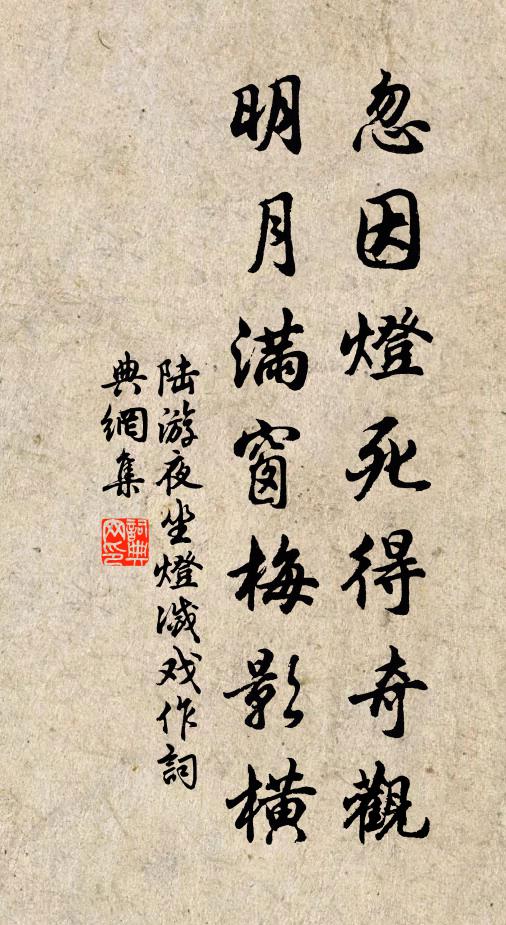 忽因燈死得奇觀
明月滿窗梅影橫
陆游夜坐燈滅戏作詞
典網集
詞典
网印